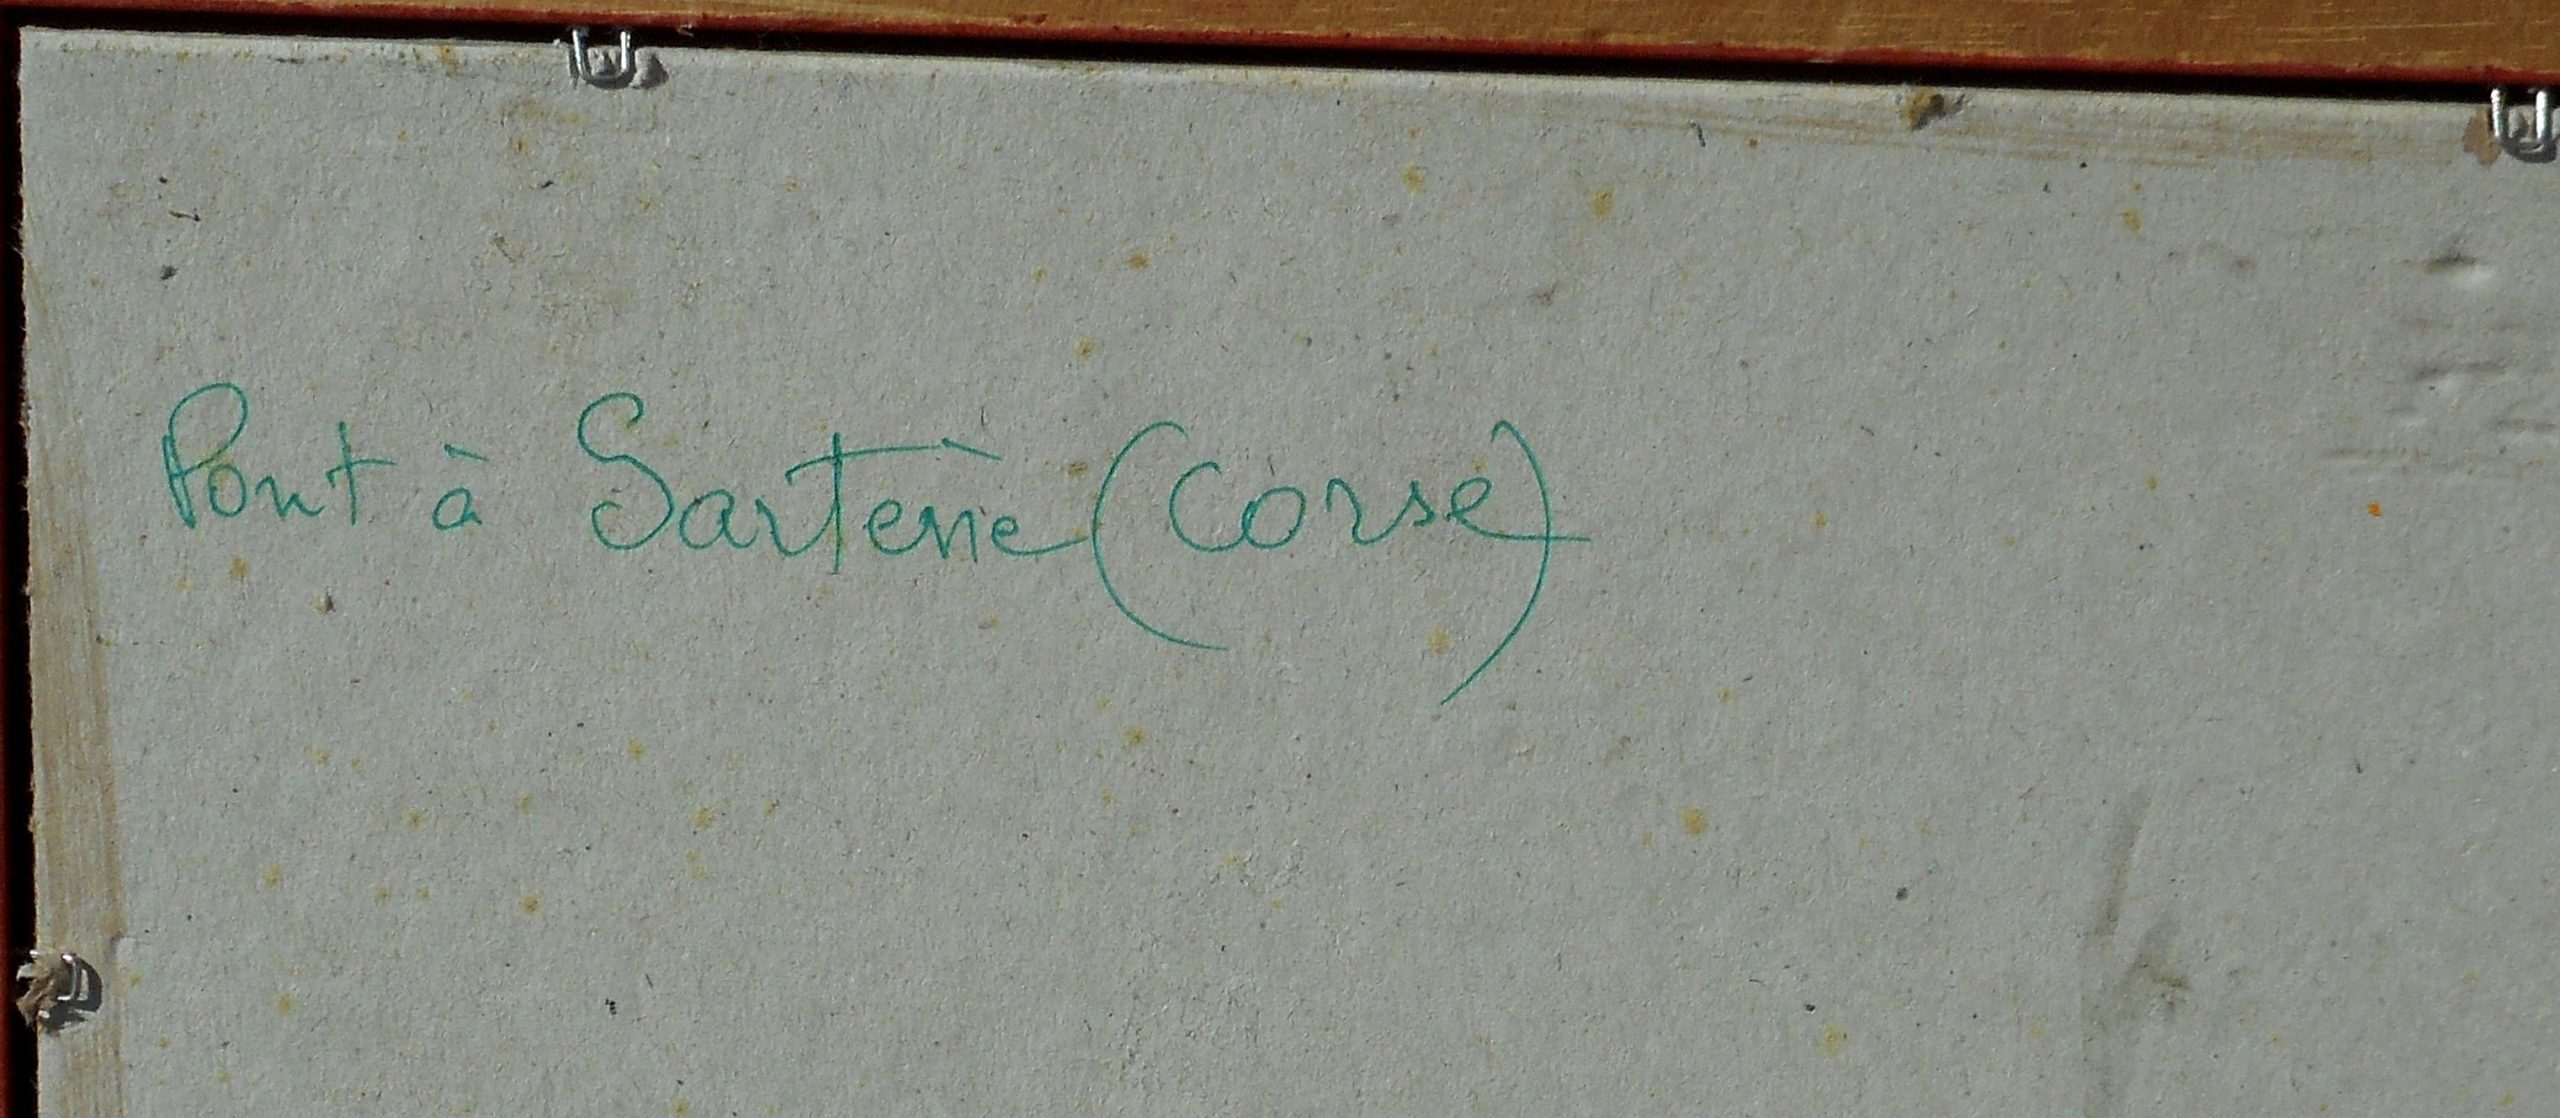 Pont à Sartène (Corse)